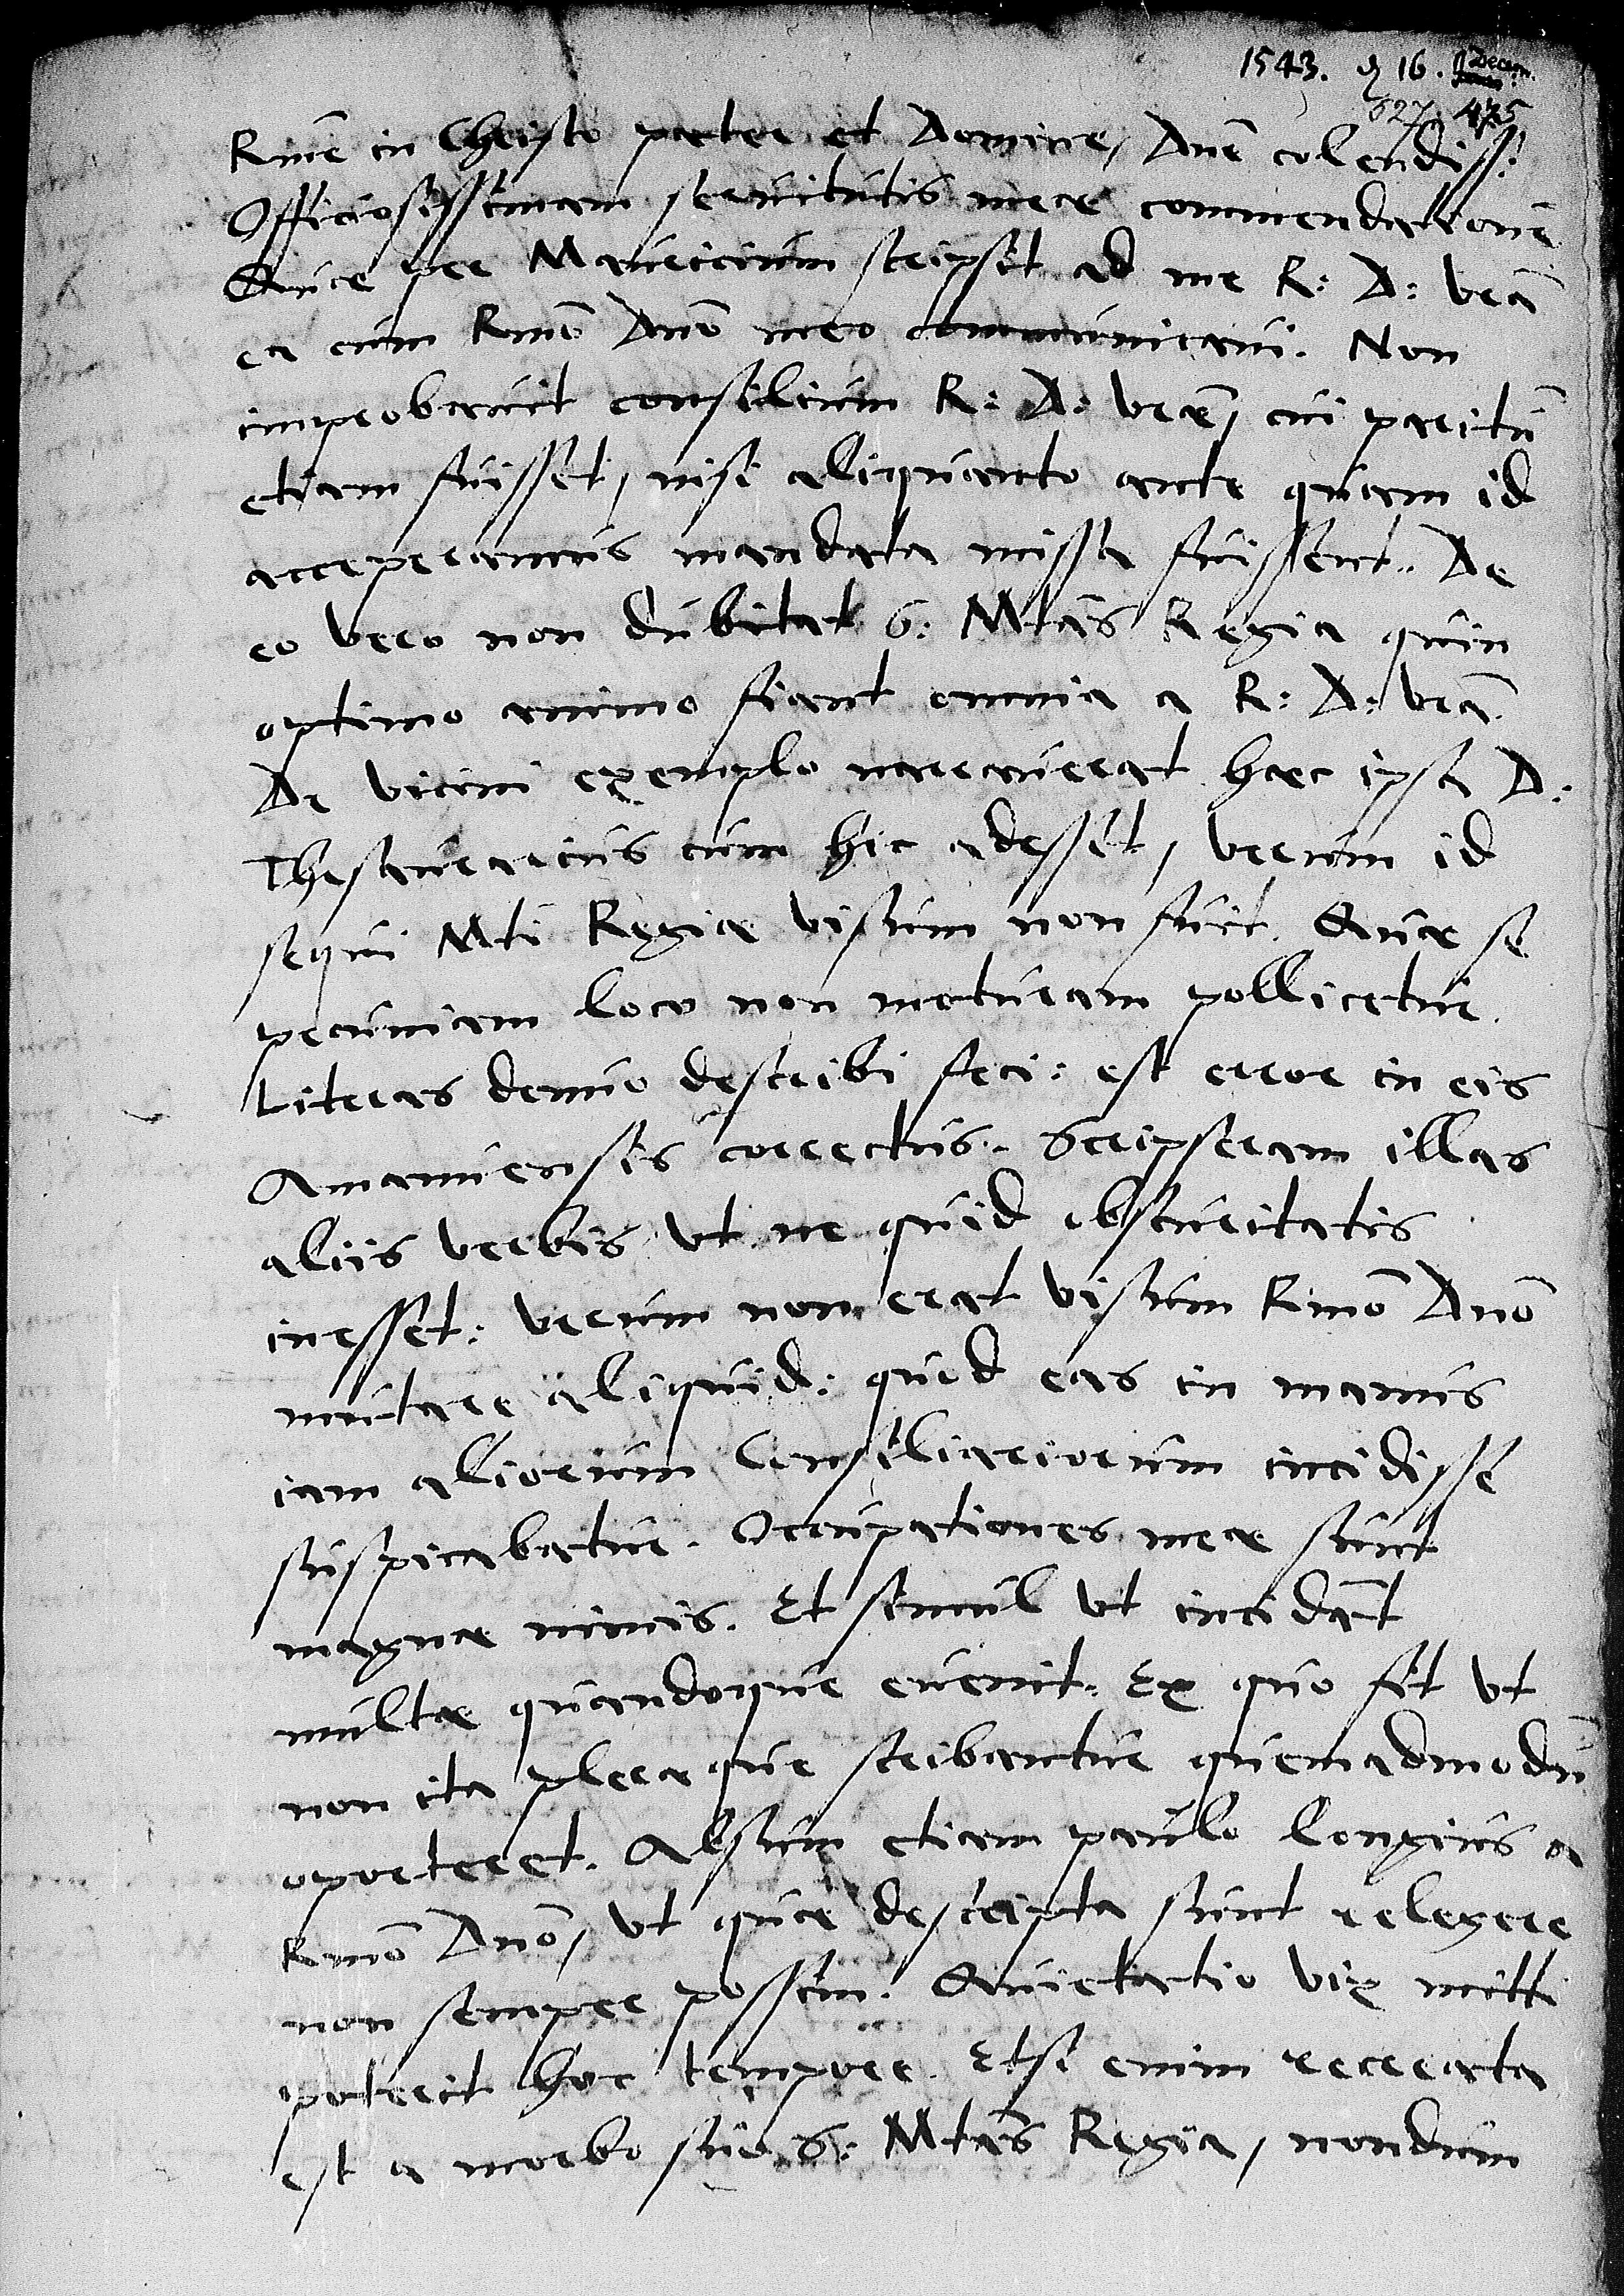 1543. d 16. Decem.
527 475
Rme in Christo pater et Domine, Dne colendiss:
Officiosissimam seruitutis meae commendationē
Quae per Mauricium scripsit ad me R: D: vrā
ea cum Rmo Dno meo communicaui. Non
improbauit consilium R: D: vrae, cui paritū
etiam fuisset, nisi aliquanto ante quam id
acceperamus mandata missa fuissent. De
eo vero non dubitat S: Mtas Regia quin
optimo animo fiant omnia a R: D: vrā.
De vicini exemplo narrauerat haec ipsa D:
Thesaurarius cum hic adesset, verum id
sequi Mti Regiae visum non fuit. Quae se
pecuniam loco non moturam pollicetur.
Literas denuo describi feci: est error in eis
Amanuensis correctus. Scripseram illas
aliis verbis vt ne quid obscuritatis
inesset: verum non erat visum Rmo Dno
mutare aliquid: quod eas in manus
iam aliorum Consiliariorum incidisse
suspicabatur. Occupationes meae sunt
magnae nimis. Et simul vt incidāt
multae quandoque euenit. Ex quo fit vt
non ita pleraque scribantur quemadmodū
oporteret. Absum etiam paulo longius a
Rmo Dno, vt quae descripta sunt relegere
non semper possim. Quietatio vix mitti
poterit hoc tempore. Etsi enim recreata
est a morbo suo S: Mtas Regia, nondum